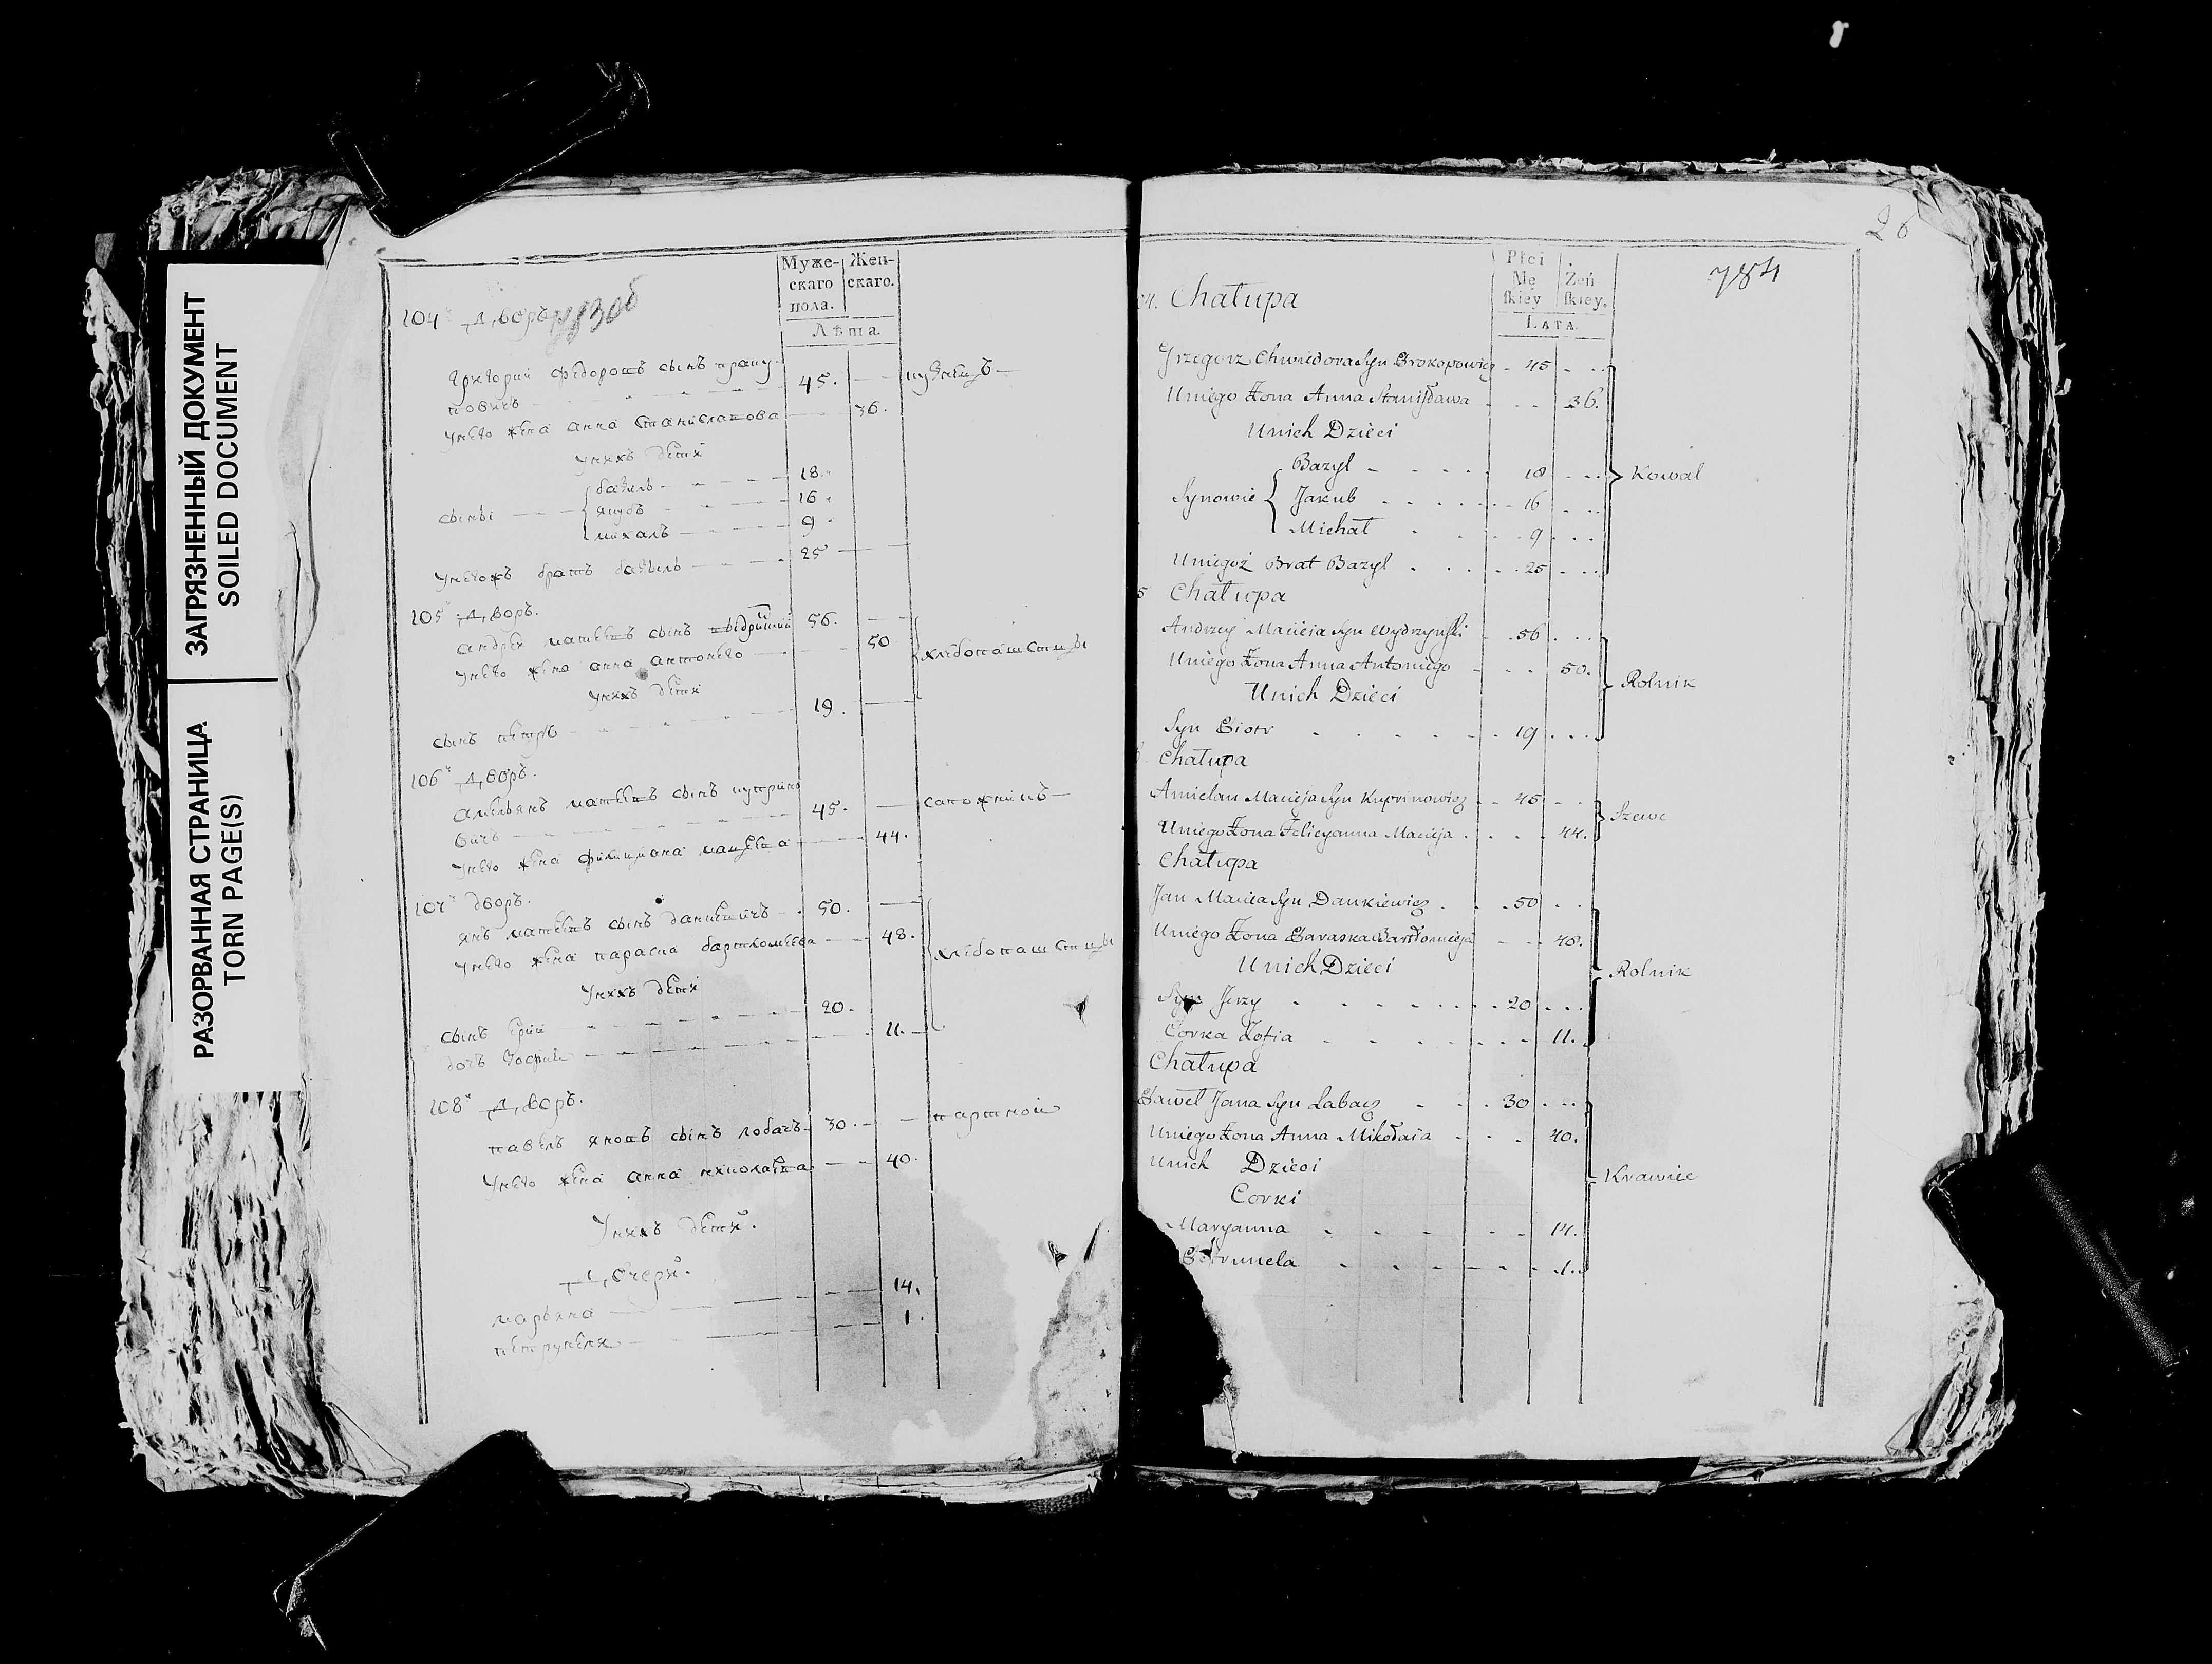 ЗАГРЯЗНЕННЫЙ ДОКУМЕНТ
SOILED DOCUMENT
РАЗОРВАННАЯ СТРАНИЦА
TORN PAGE(S)
Муже-
скаго
пола.
Жен-
скаго.
Лѣта.
104 дворъ
григорий федоровъ сынъ
повичъ 45.
унего жена анна станиславова 36.
унихъ дети
сыны
базыль 18
якубъ 16
михалъ 9
унегожъ братъ базыль 25
105 дворъ.
андрей матеевъ сынъ 56.
унего жена анна антонего 50
хлебопашецъ
унихъ дети
сынъ петръ 19.
106 дворъ.
амельянъ матеевъ сынъ куприно
вичъ 45. сапожникъ
унего жена фелициана мацеева 44.
107 дворъ.
янъ матеевъ сынъ данкевичъ 50.
унего жена параска бартломеева 48.
хлебопашецъ
унихъ дети
сынъ ерий 20.
дочъ зофия 11.
108 дворъ.
павелъ яновъ сынъ лобачъ 30. партной
унего жена анна николаева 40.
унихъ дети.
дочери.
марьяна 14.
петрунеля 1.
26
784
Płci
Mę
ſkiey
Żeń
ſkiey.
LATA.
Chałupa
Grzegorz Chwiedora Syn Prokopowicz 45
Uniego Żona Anna Stanisława 36.
Unich Dzieci
Synowie
Bazyl 18
Jakub 16
Michał 9
Kowal
Uniegoż Brat Bazyl 25
5 Chałupa
Andrzey Macieja Syn Wydrzyński 56
Uniego Żona Anna Antoniego 50.
Rolnik
Unich Dzieci
Syn Piotr 19
Chałupa
Amielan Macieja Syn Kuprinowicz 45
Szewc
Uniego Żona Felicyanna Macieja 44.
Chałupa
Jan Macieja Syn Dankiewicz 50
Uniego Żona Paraska Bartłomieja 48.
Unich Dzieci
Rolnik
Syn Jerzy 20
Corka Zofia 11.
Chałupa
Paweł Jana Syn Labacz 30
Uniego Żona Anna Mikołaia 40.
Unich Dzieci
Krawiec
Corki
Maryanna 14.
Petrunela 1.